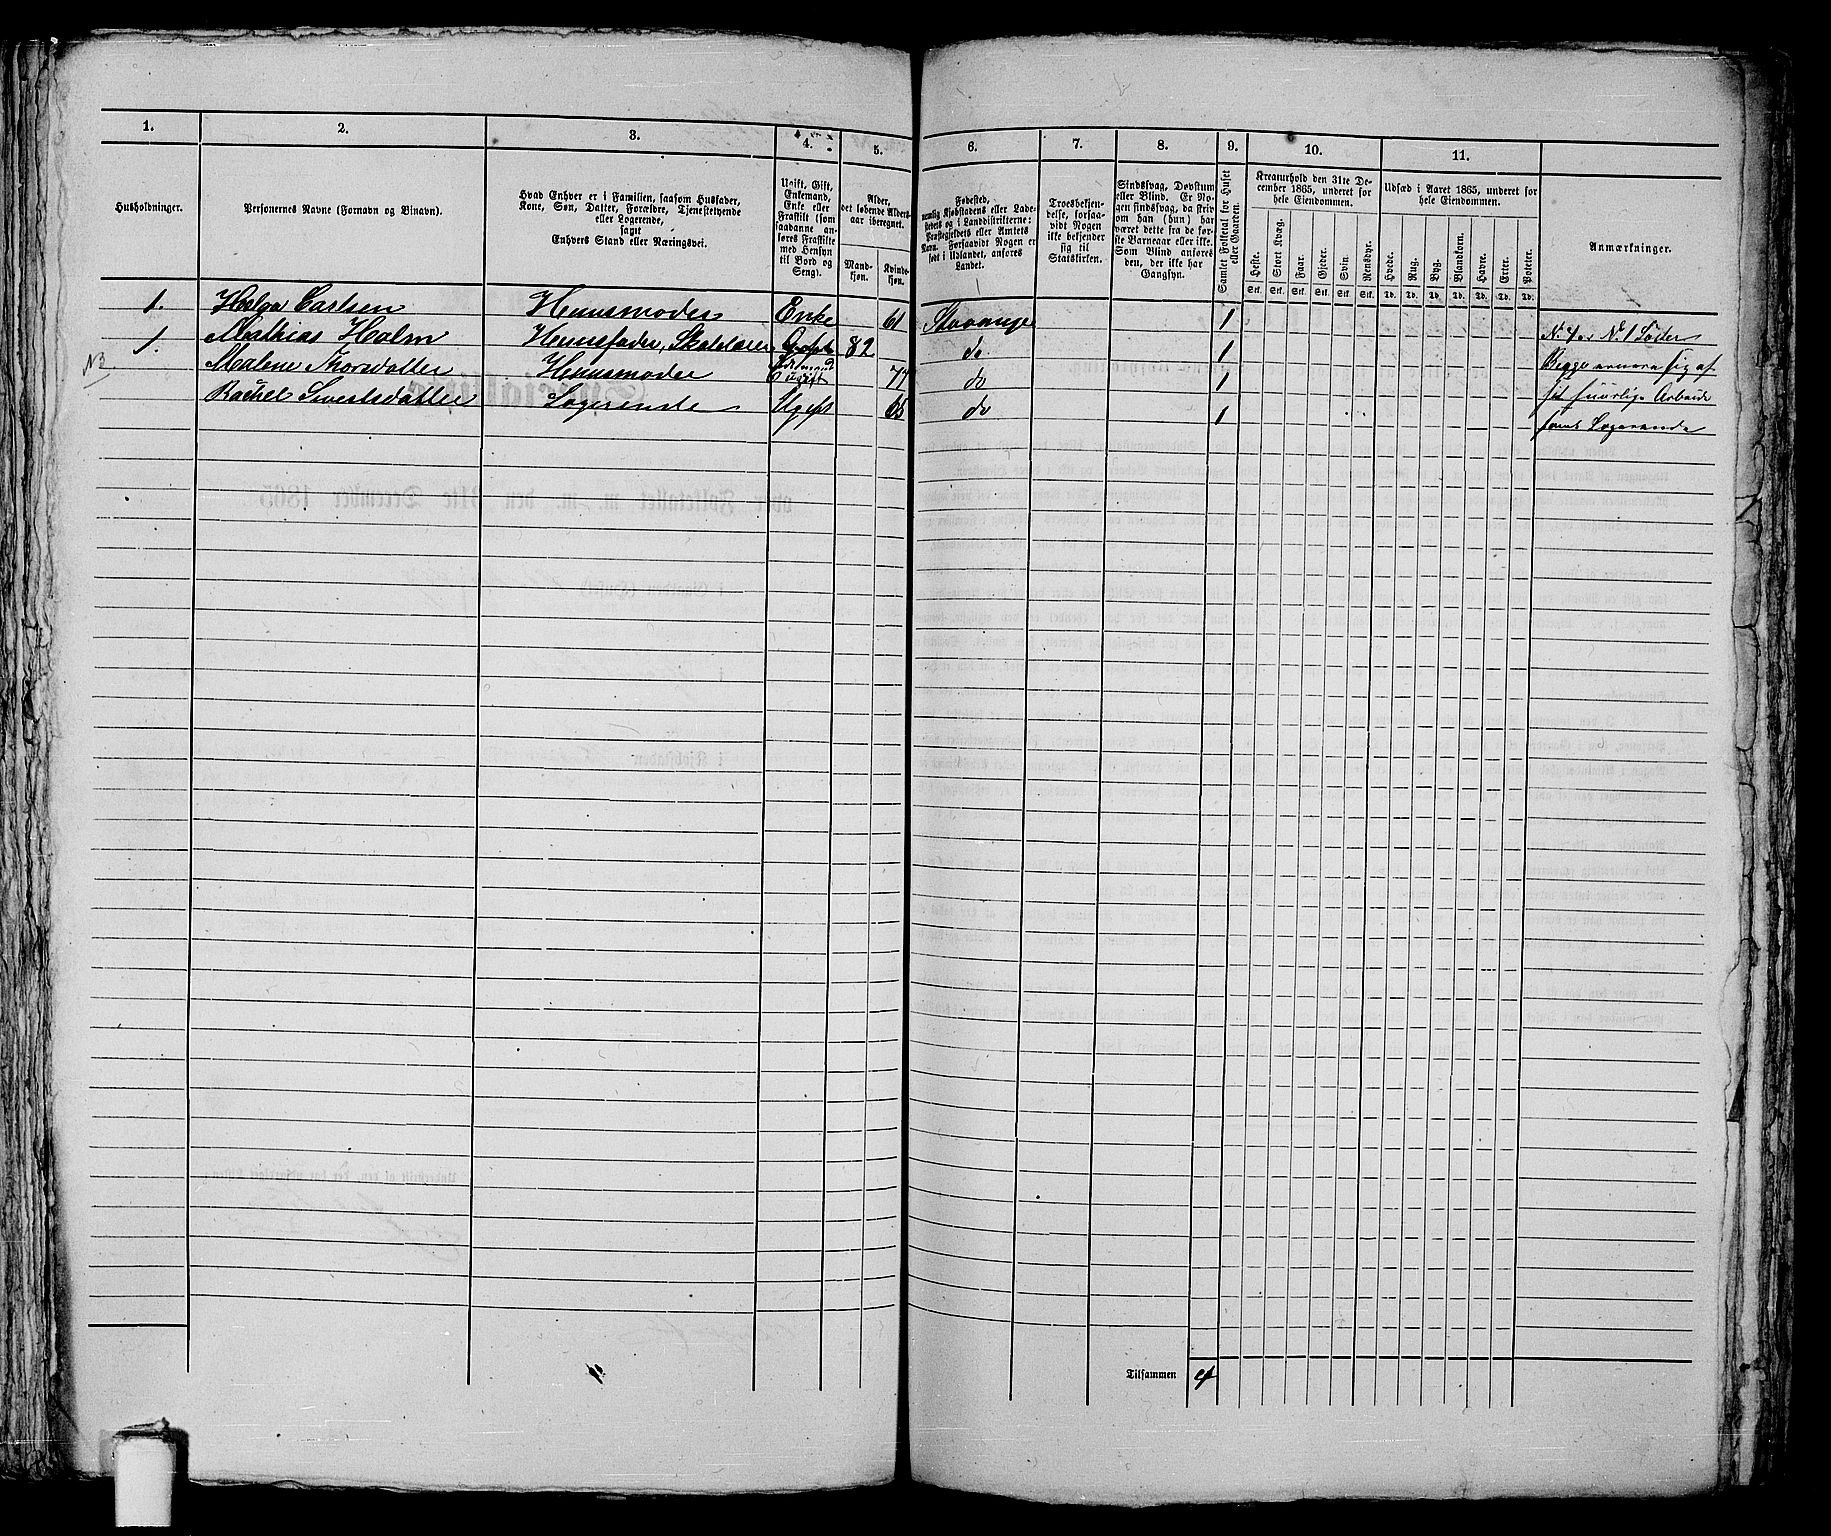 1. 2. 3. 4. 5. 6. 7. 8. 9. 10. 11.
Husholdninger.
Personernes Navne (Fornavn og Binavn).
Hvad Enhver er i Familien, saasom Husfader,
Kone, Søn, Datter, Forældre, Tjenestetyende
eller Logerende,
samt
Enhvers Stand eller Næringsvei.
Ugift, Gift,
Enkemand,
Enke eller
Fraskilt (som
saadanne an-
føres Fraskilte
med Hensyn
til Bord og
Seng).
Alder,
det løbende Alders-
aar iberegnet.
Mand-
kjøn.
Kvinde-
kjøn.
Fødested,
nemlig Kjøbstadens eller Lade-
stedets og i Landdistrikterne:
Præstegjeldets eller Amtets
Navn. Forsaavidt Nogen er
født i Udlandet, anføres
Landet.
Troesbekjen-
delse, forsaa-
vidt Nogen
ikke bekjender
sig til
Statskirken.
Sindssvag, Døvstum
eller Blind. Er No-
gen sindssvag, da skriv
om han (hun) har
været dette fra de før-
ste Barneaar eller ikke.
Som Blind anføres
den, der ikke har
Gangsyn.
Samlet Folketal for Huset
eller Gaarden.
Kreaturhold den 31te De-
cember 1865, underet for
hele Eiendommen.
Heste. Stort Kvæg. Faar. Gjeder. Svin. Rensdyr.
Stk. Stk. Stk. Stk. Stk. Stk.
Udsæd i Aaret 1865, underet for
hele Eiendommen.
Hvede. Rug. Byg. Blandkorn. Havre. Erter. Poteter.
Td. Td. Td. Td. Td. Td. Td.
Anmærkninger.
1. Helga Carlsen Huusmoder Enke 61 Stavanger 1
1. Mathias Holm Huusfader, Gift 82 do 1 Søster
Malene Thorsdatter Huusmoder 77 do 1 Begge ernære sig af
Rachel Sivertsdatter Logerende Ugift 65 do 1 sit huuslige Arbeide
samt Logerende
Tilsammen 4